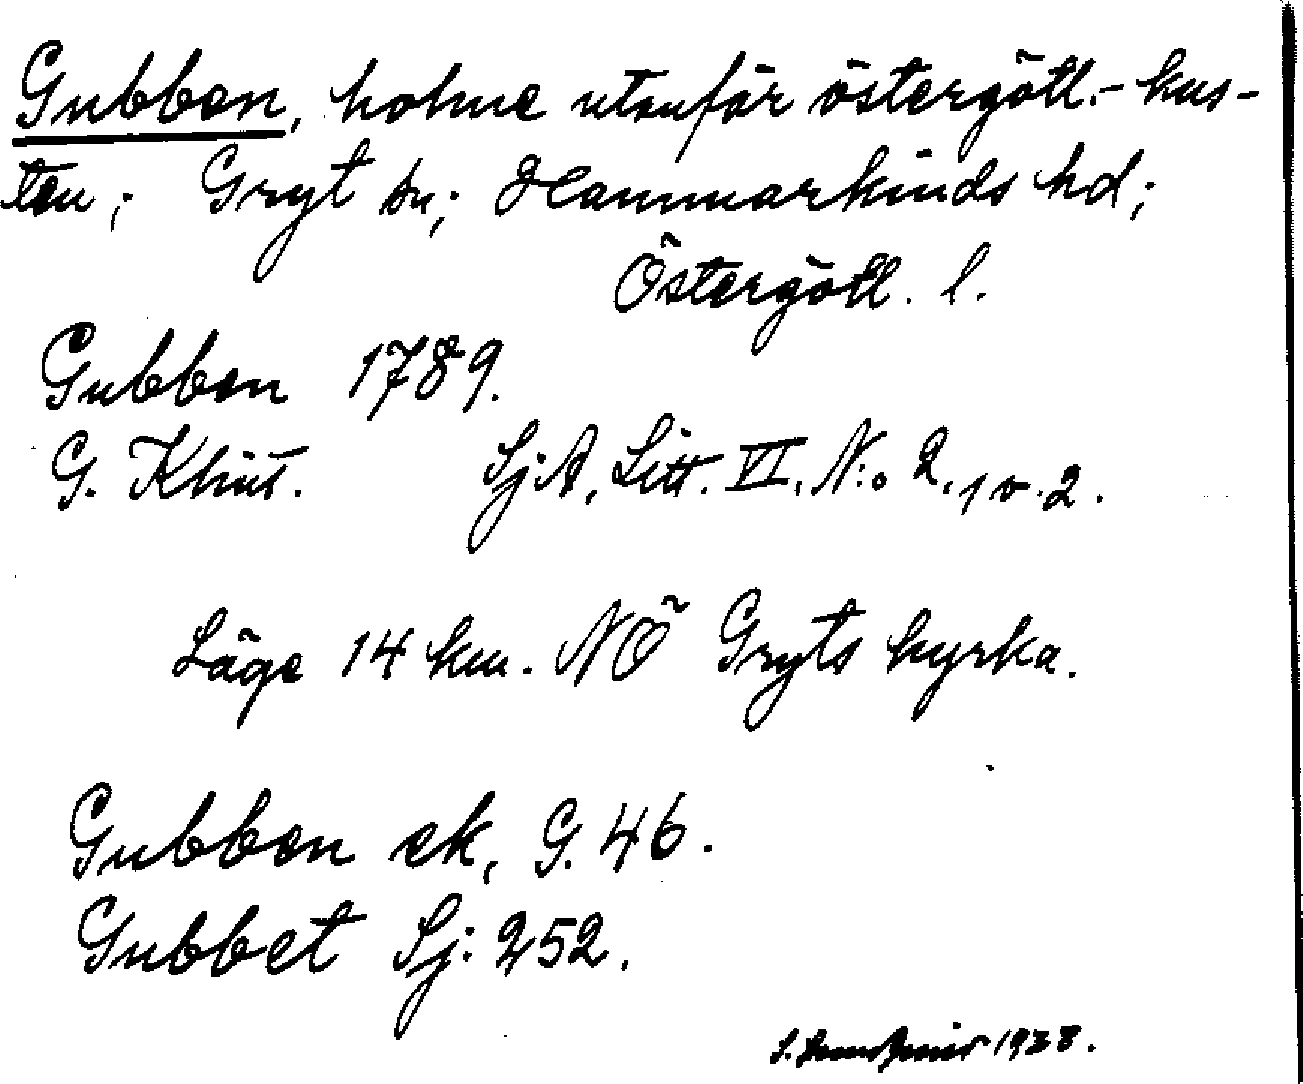 Gubben, holme utanför östergötl.-kus-
ten; Gryt sn; Hammarkinds hd;
Östergötl. l.
Gubben 1789.
G. Klint. Sj:A, Litt. VI, N:o 2, 1 o. 2.
Läge 14 km. NÖ Gryts kyrka.
Gubben ek, G. 46.
Gubbet Sj: 252.
S. 1938.